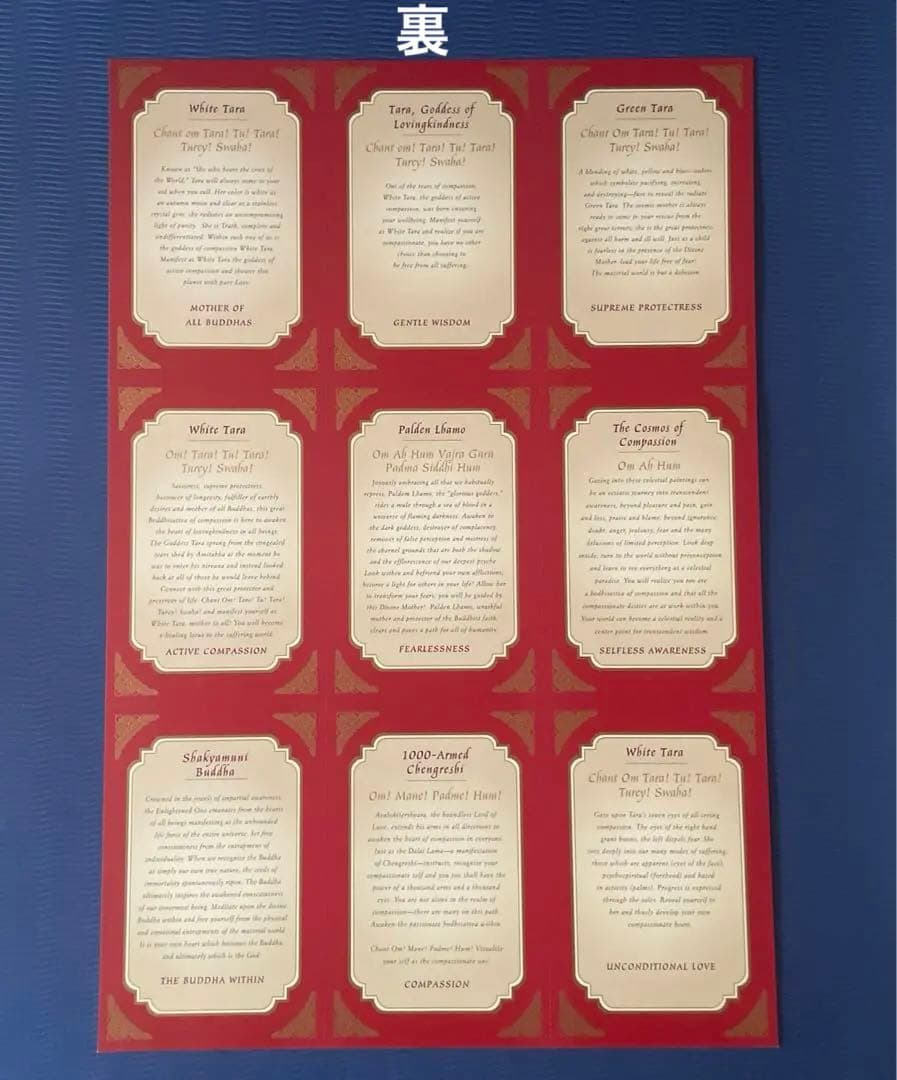 裏
White Tara
Chant om Tara! Tu! Tara!
Turey! Swaha!
Known as "She who hears the cries of
the World," Tara will always come to your
aid when you call. Her color is white as
an autumn moon and clear as a stainless
crystal gem, she radiates an uncompromising
light of purity. She is Truth, complete and
undifferentiated. Within each one of us is
the goddess of compassion White Tara.
Manifest as White Tara the goddess of
active compassion and shower this
planet with pure Love.
MOTHER OF
ALL BUDDHAS
Tara, Goddess of
Lovingkindness
Chant om! Tara! Tu! Tara!
Turey! Swaha!
Out of the tears of compassion,
White Tara, the goddess of active
compassion, was born ensuring
your wellbeing. Manifest yourself
as White Tara and realize if you are
compassionate, you have no other
choice than choosing to
be free from all suffering.
GENTLE WISDOM
Green Tara
Chant Om Tara! Tu! Tara!
Turey! Swaha!
A blending of white, yellow and blue-colors
which symbolize pacifying, increasing,
and destroying—fuse to reveal the radiant
Green Tara. The cosmic mother is always
ready to come to your rescue from the
right great terrors; she is the great protectress
against all harm and ill will. Just as a child
is fearless in the presence of the Divine
Mother lead your life free of fear!
The material world is but a delusion.
SUPREME PROTECTRESS
White Tara
Om! Tara! Tu! Tara!
Turey! Swaha!
Saviouress, supreme protectress,
bestower of longevity, fulfiller of earthly
desires and mother of all Buddhas, this great
Bodhisattva of compassion is here to awaken
the heart of lovingkindness in all beings.
The Goddess Tara sprang from the congealed
tears shed by Amitabha at the moment he
was to enter his nirvana and instead looked
back at all of those he would leave behind.
Connect with this great protector and
preserver of life. Chant Om! Tara! Tu! Tara!
Turey! Swaha! and manifest yourself as
White Tara, mother to all! You will become
a healing lotus to the suffering world.
ACTIVE COMPASSION
Palden Lhamo
Om Ah Hum Vajra Guru
Padma Siddhi Hum
Joyously embracing all that we habitually
repress, Palden Lhamo, the "glorious goddess,"
rides a mule through a sea of blood in a
universe of flaming darkness. Awaken to
the dark goddess, destroyer of complacency,
remover of false perception and mistress of
the charnel grounds that are both the shadow
and the efflorescence of our deepest psyche.
Look within and befriend your own afflictions,
become a light for others in your life! Allow her
to transform your fears; you will be guided by
this Divine Mother! Palden Lhamo, wrathful
mother and protector of the Buddhist faith,
clears and paves a path for all of humanity.
FEARLESSNESS
The Cosmos of
Compassion
Om Ah Hum
Gazing into these celestial paintings can
be an ecstatic journey into transcendent
awareness, beyond pleasure and pain, gain
and loss, praise and blame; beyond ignorance,
doubt, anger, jealousy, fear and the many
delusions of limited perception. Look deep
inside, turn to the world without preconception
and learn to see everything as a celestial
paradise. You will realize you too are
a bodhisattva of compassion and that all the
compassionate deities are at work within you.
Your world can become a celestial reality and a
center point for transcendent wisdom.
SELFLESS AWARENESS
Shakyamuni
Buddha
Crowned in the jewels of impartial awareness,
the Enlightened One emanates from the hearts
of all beings manifesting as the unbounded
life force of the entire universe. Set free
consciousness from the entrapment of
individuality. When we recognize the Buddha
as simply our own true nature, the seeds of
immortality spontaneously ripen. The Buddha
ultimately inspires the awakened consciousness
of our innermost being. Meditate upon the divine
Buddha within and free yourself from the physical
and emotional entrapments of the material world.
It is your own heart which becomes the Buddha
and ultimately which is the God.
THE BUDDHA WITHIN
1000-Armed
Chengreshi
Om! Mane! Padme! Hum!
Avalokiteshvara, the boundless Lord of
Love, extends his arms in all directions to
awaken the heart of compassion in everyone.
Just as the Dalai Lama—a manifestation
of Chengreshi—instructs, recognize your
compassionate self and you too shall have the
power of a thousand arms and a thousand
eyes. You are not alone in the realm of
compassion—there are many on this path.
Awaken the passionate bodhisattva within.
Chant Om! Mane! Padme! Hum! Visualize
your self as the compassionate one.
COMPASSION
White Tara
Chant Om Tara! Tu! Tara!
Turey! Swaha!
Gaze upon Tara's seven eyes of all-seeing
compassion. The eyes of the right hand
grant boons, the left dispels fear. She
sees deeply into our many modes of suffering,
those which are apparent (eyes of the face),
psychospiritual (forehead) and based
in activity (palms). Progress is expressed
through the soles. Reveal yourself to
her and thusly develop your own
compassionate heart.
UNCONDITIONAL LOVE